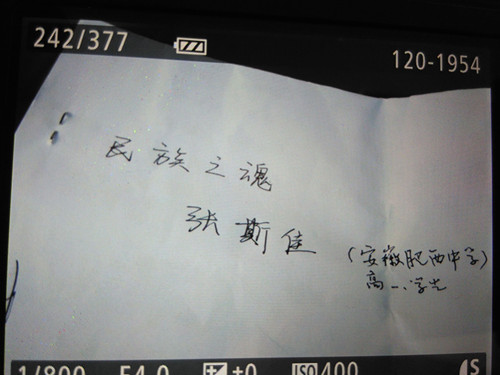 242/377
120-1954
民族之魂
张斯佳
(安徽肥西中学)
高一.学生
1/800 F4.0 ±0 ISO 400 S